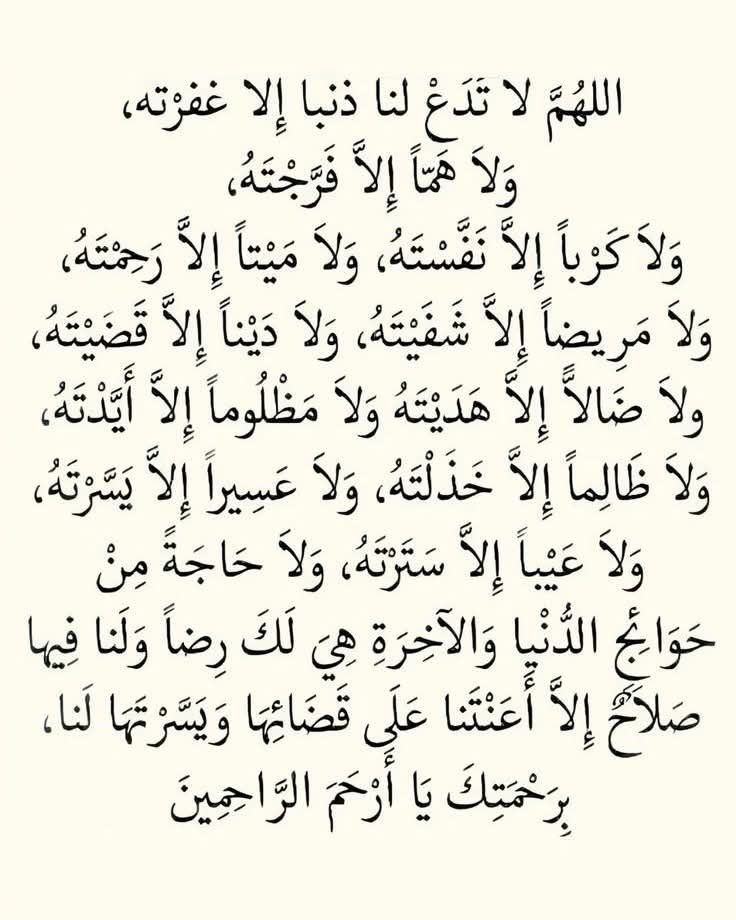 اللهُمَّ لا تَدَعْ لنا ذنبا إِلا غفرْته،
وَلاَ هَمّاً إِلاَّ فَرَّجْتَهُ،
وَلاَ كَرْباً إِلاَّ نَفَّسْتَهُ، وَلاَ مَيْتاً إِلاَّ رَحِمْتَهُ،
وَلاَ مَرِيضاً إِلاَّ شَفَيْتَهُ، وَلاَ دَيْناً إِلاَّ قَضَيْتَهُ،
ولاَ ضَالاًّ إِلاَّ هَدَيْتَهُ وَلاَ مَظْلُوماً إِلاَّ أَيَّدْتَهُ،
وَلاَ ظَالِماً إِلاَّ خَذَلْتَهُ، وَلاَ عَسِيراً إِلاَّ يَسَّرْتَهُ،
وَلاَ عَيْباً إِلاَّ سَتَرْتَهُ، وَلاَ حَاجَةً مِنْ
حَوَائِجِ الدُّنْيا وَالآخِرَةِ هِيَ لَكَ رِضاً وَلَنا فِيها
صَلاَحٌ إِلاَّ أَعَنْتَنا عَلَى قَضَائِهَا وَيَسَّرْتَهَا لَنا،
بِرَحْمَتِكَ يَا أَرْحَمَ الرَّاحِمِينَ